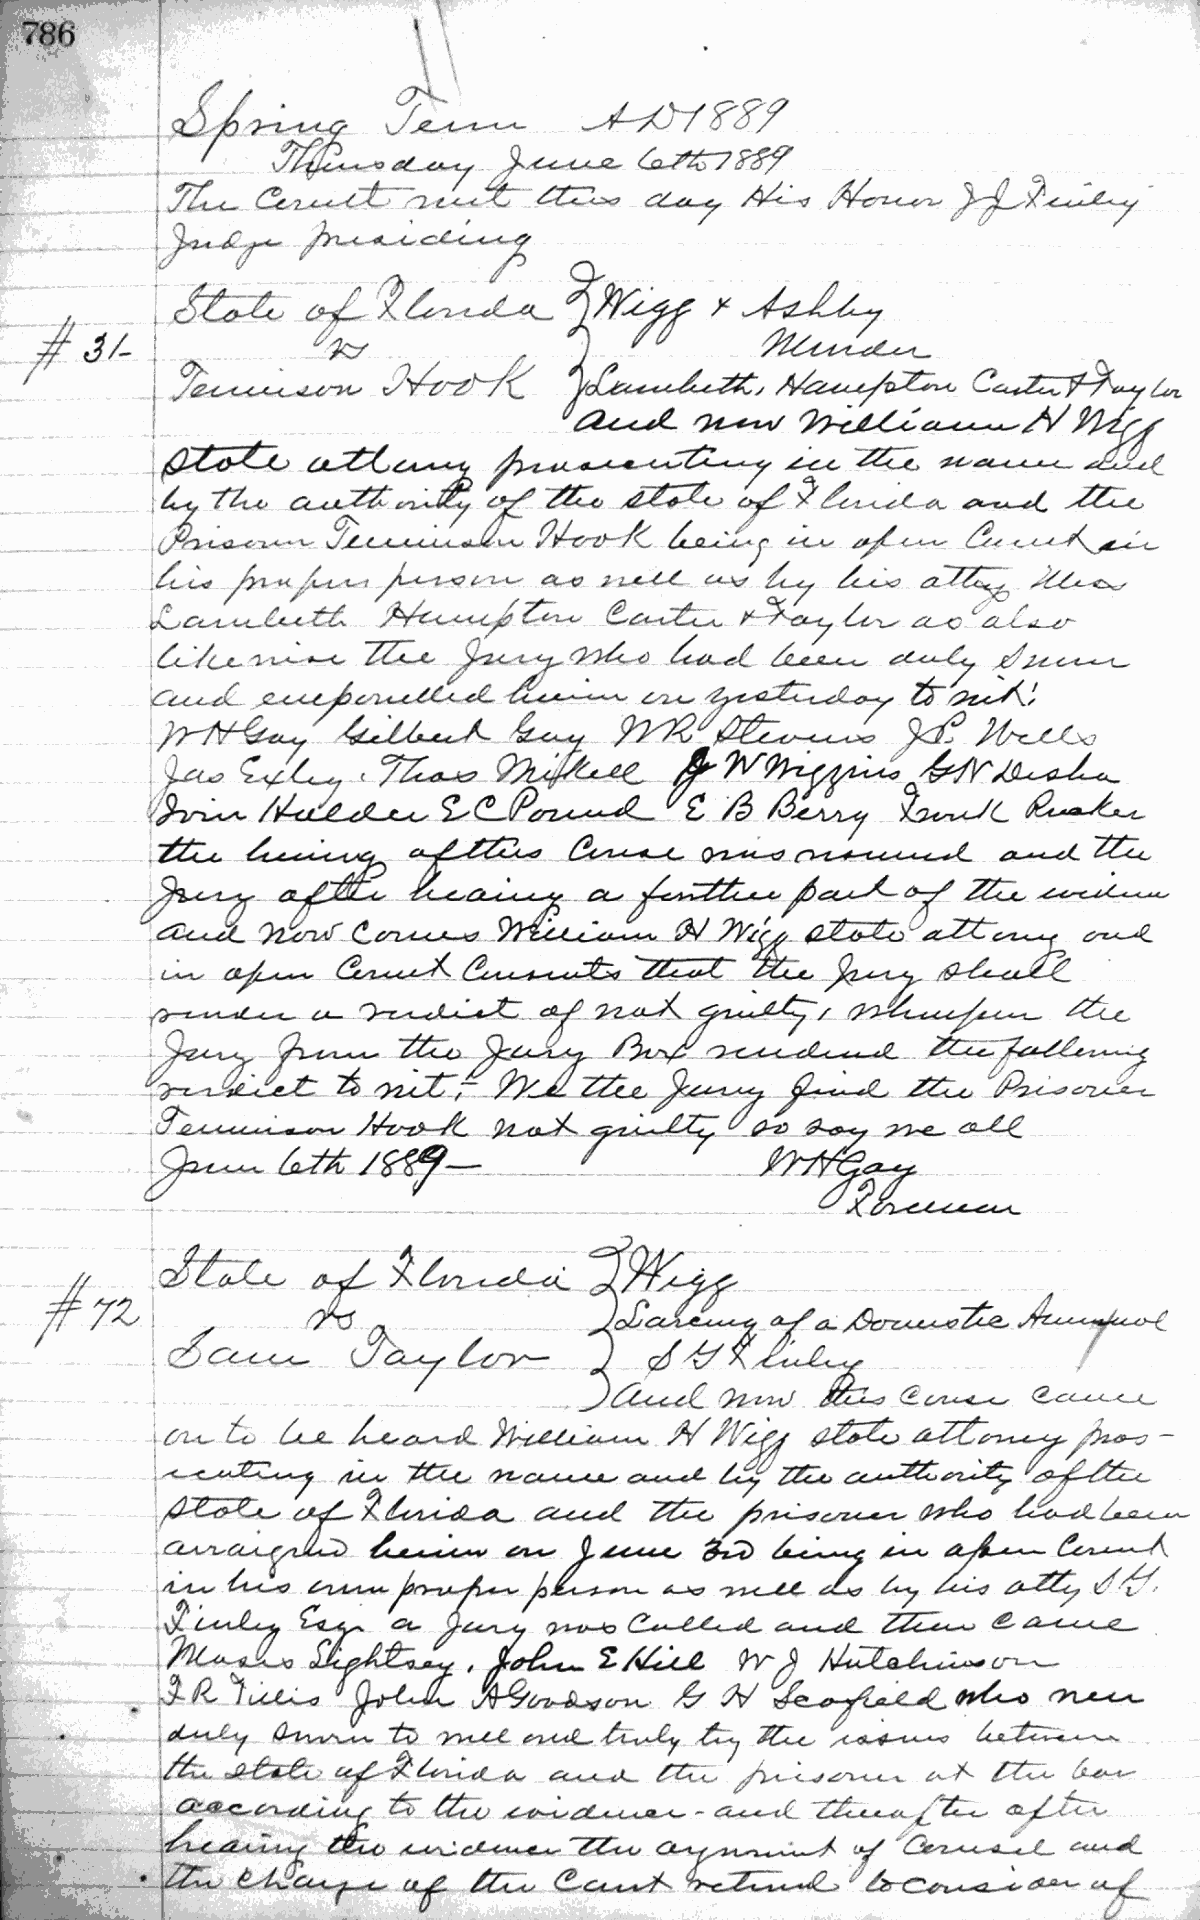 786
Spring Term AD 1889
Thursday June 6th 1889
The Court met this day His Honor J J Finley
Judge presiding
State of Florida } Wigg & Ashby
# 31- vs Murder
Tennison Hook } Lambeth, Hampton Carter & Taylor
and now William H Wigg
State attorney prosecuting in the name and
by the authority of the State of Florida and the
Prisoner Tennison Hook being in open Court in
his proper person as well as by his attys Mess
Lambeth Hampton Carter & Taylor as also
likewise the Jury who had been duly Sworn
and empanelled herein on yesterday to wit:
W H Gay Gilbert Gay W R Stevens J P Wells
Jas Exley, Thos Mikell J W Wiggins G N Disha
Holder E C Pound E B Berry Frank Rusker
the hearing of this Cause was resumed and the
Jury after hearing a further part of the evidence
and now comes William H Wigg State attorney and
in open Court Consents that the Jury shall
render a verdict of not guilty, whereupon the
Jury from the Jury Box rendered the following
verdict to wit:- We the Jury find the Prisoner
Tennison Hook not guilty so say we all
June 6th 1889- W H Gay
Foreman
State of Florida } Wigg
# 72 vs } Larceny of a Domestic Animal
Sam Taylor } S Y Finley
} and now this cause came
on to be heard William H Wigg State attorney pros-
ecuting in the name and by the authority of the
State of Florida and the prisoner who had been
arraigned herein on June 3rd being in open Court
in his own proper person as well as by his atty S Y.
Finley Esqr a Jury was Called and then came
Moses Sightsey, John E Hill W J Hutchinson
F R Tillis John A Goodson G H Scofield who were
duly sworn to well and truly try the issues between
the State of Florida and the prisoner at the bar
according to the evidence - and thereafter after
hearing the evidence the argument of Counsel and
the charge of the Court retired to consider of